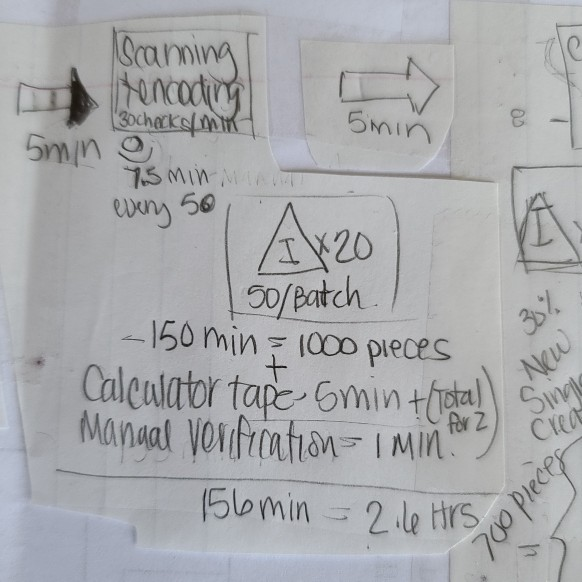 Scanning
+encoding
30checks/min
5min
5min
7.5 min
every 50
I x 20
50/Batch
-150 min = 1000 pieces
+
Calculator tape - 5min + (Total for 2)
Manual Verification = 1 Min.
156min = 2.6 Hrs
8
I
30%
New
700 pieces
=